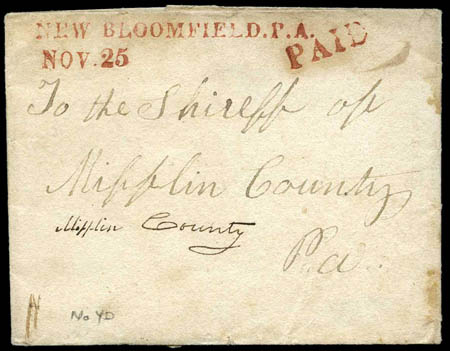 NEW BLOOMFIELD.P.A.
PAID
NOV.25
To the Shireff of
Mifflin County
Mifflin County
Pa
No YD